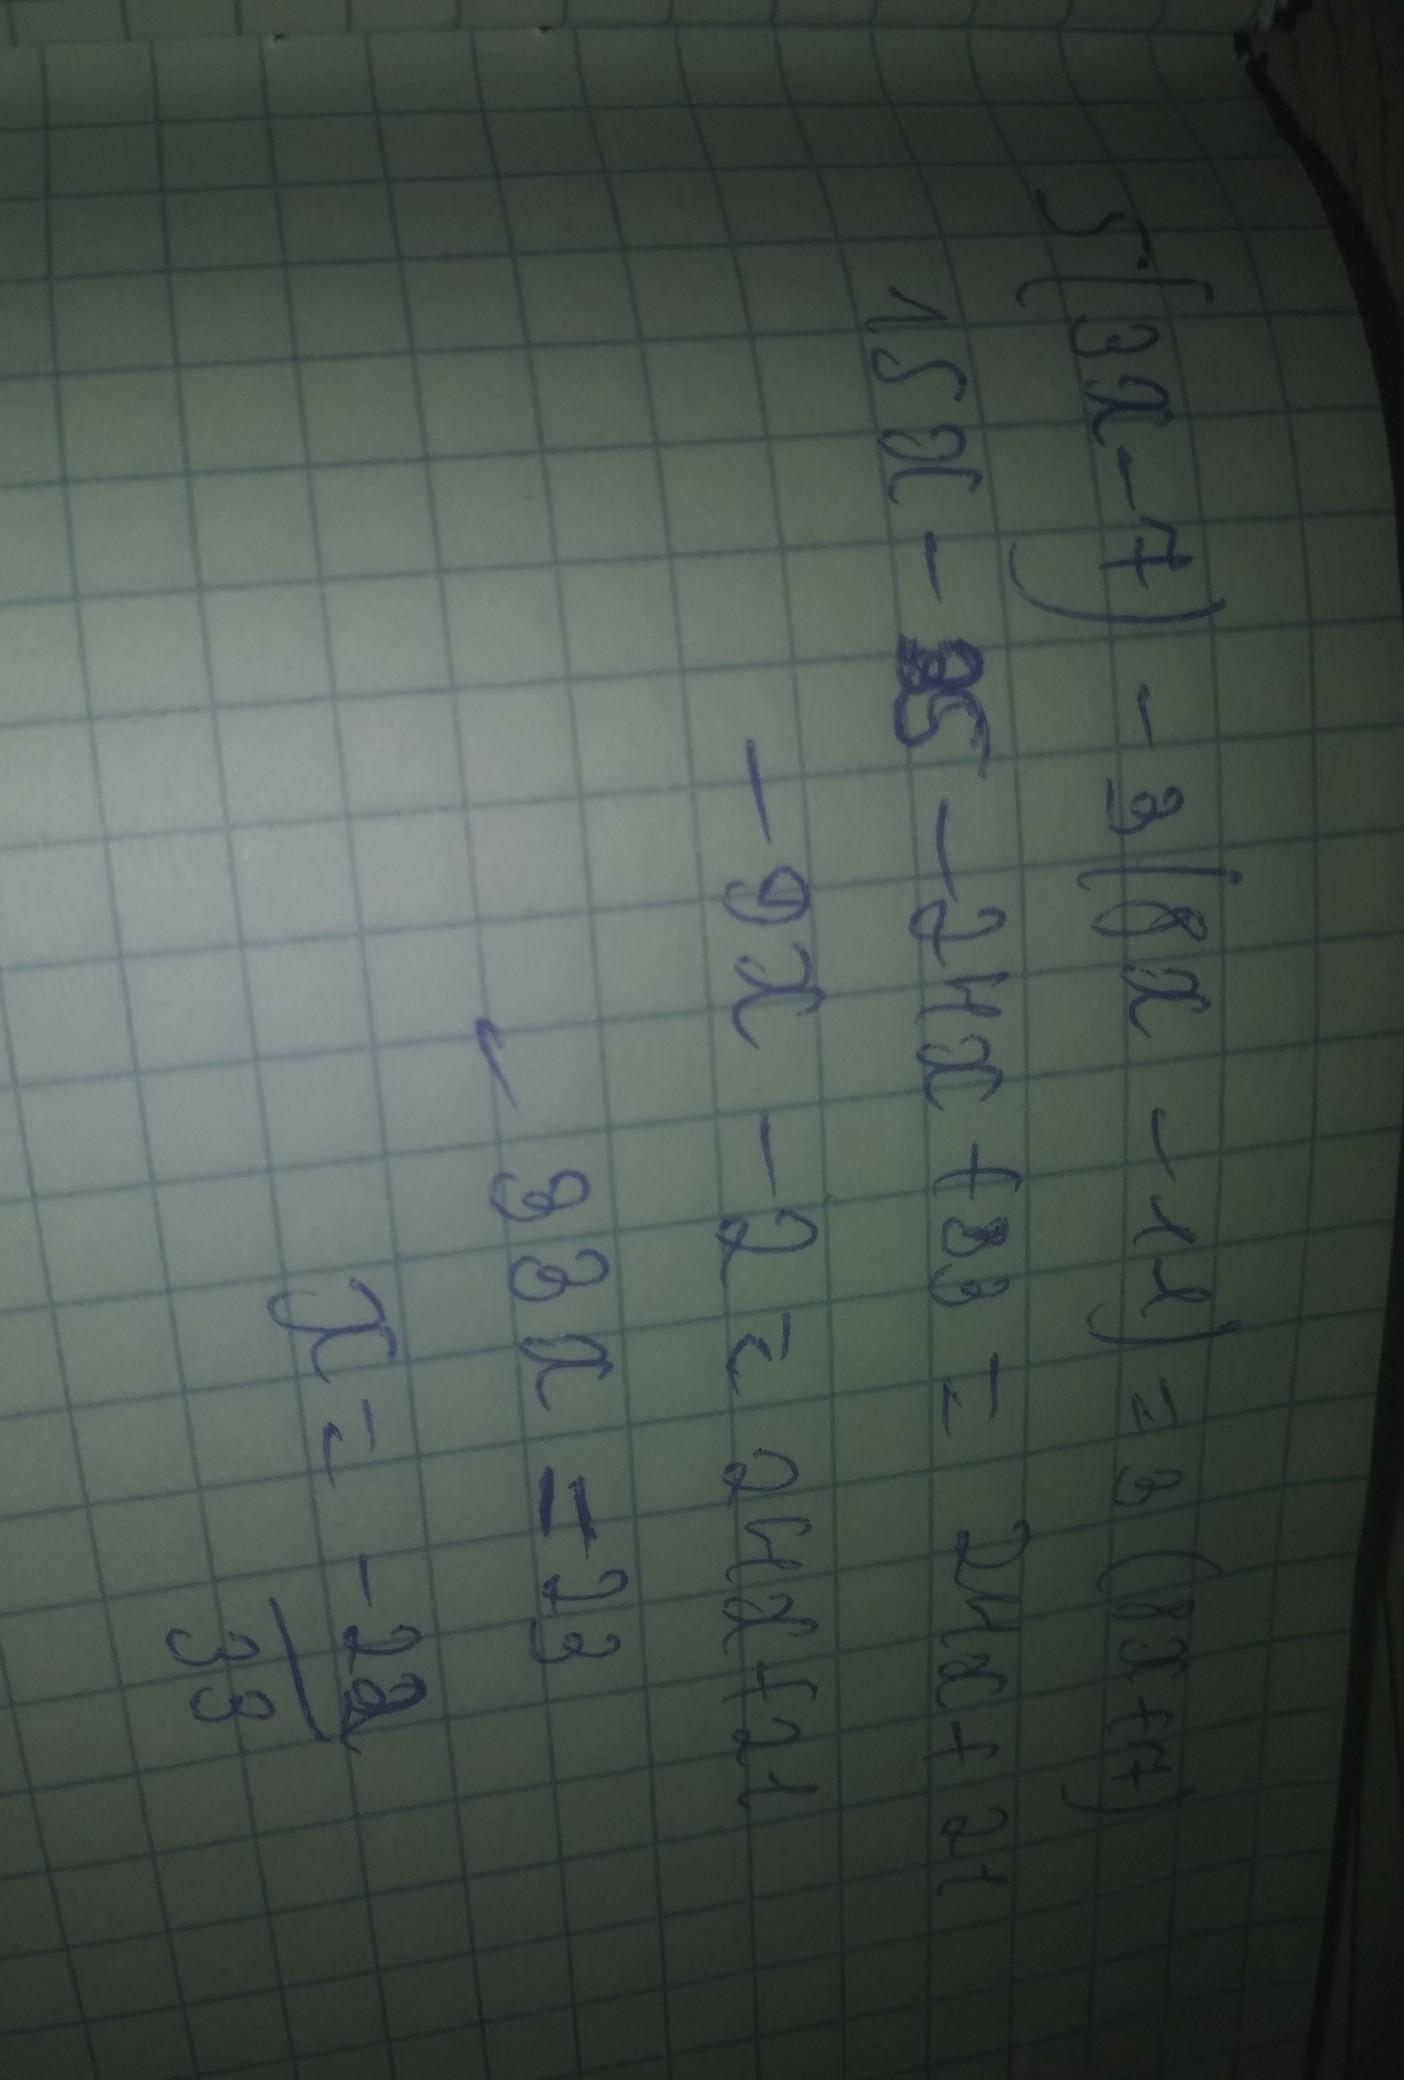 5(3x-7) - 3(8x - 11) = 3(8x+7)
15x - 35 - 24x + 33 = 24x + 21
- 9x - 2 = 24x + 21
- 33x = 23
x = - 23/33